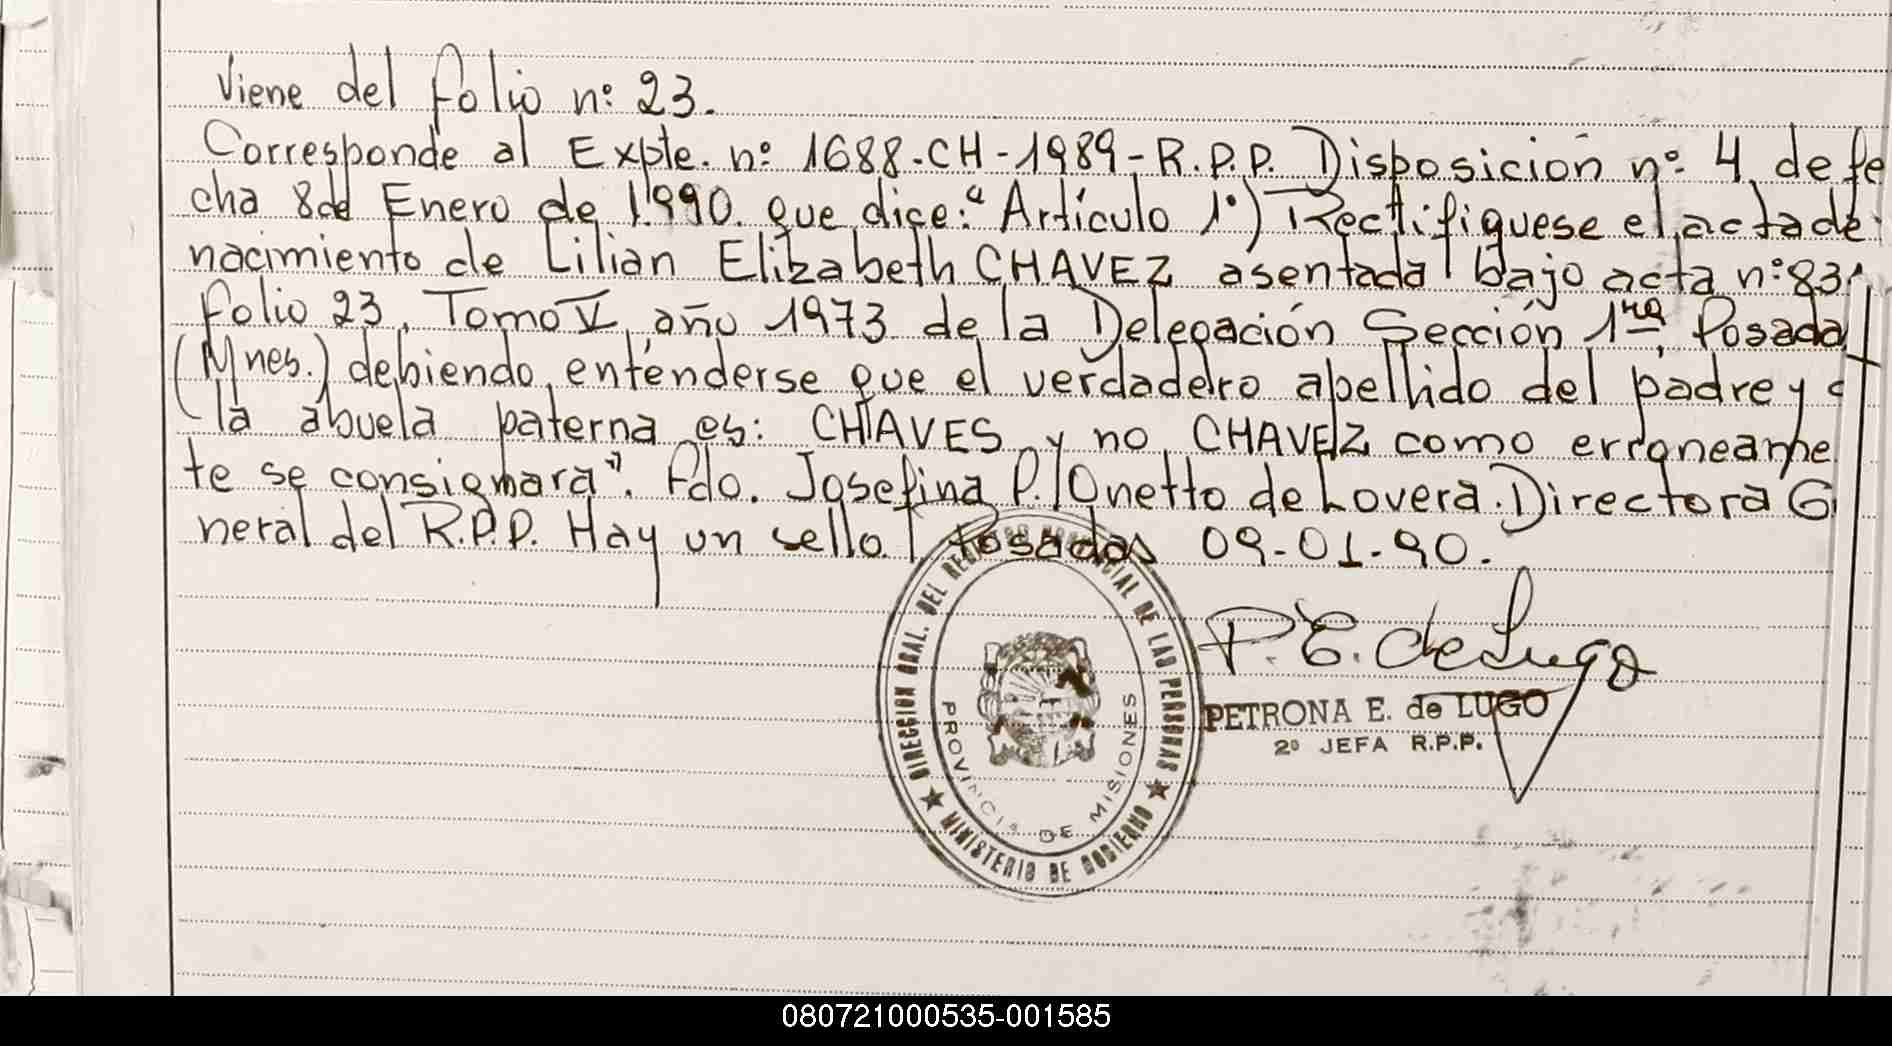 Viene del folio nº 23.
Corresponde al Expte. nº 1688-CH-1989-R.P.P. Disposición nº 4 de fe
cha 8 de Enero de 1.990. que dice: "Artículo 1º) Rectifiquese el acta de
nacimiento de Lilian Elizabeth CHAVEZ asentada bajo acta nº 831
folio 23, Tomo V, año 1973 de la Delegación Sección 1ra, Posadas
(Mnes.) debiendo entenderse que el verdadero apellido del padre y
la abuela paterna es: CHAVES y no CHAVEZ como erroneame
te se consignara". Fdo. Josefina P. Onetto de Lovera. Directora G
neral del R.P.P. Hay un sello. Posadas 09-01-90.
P. E. de Lugo
PETRONA E. de LUGO
2º JEFA R.P.P.
DIRECCION GRAL. DEL REGISTRO PROVINCIAL DE LAS PERSONAS
MINISTERIO DE GOBIERNO
PROVINCIA DE MISIONES
080721000535-001585